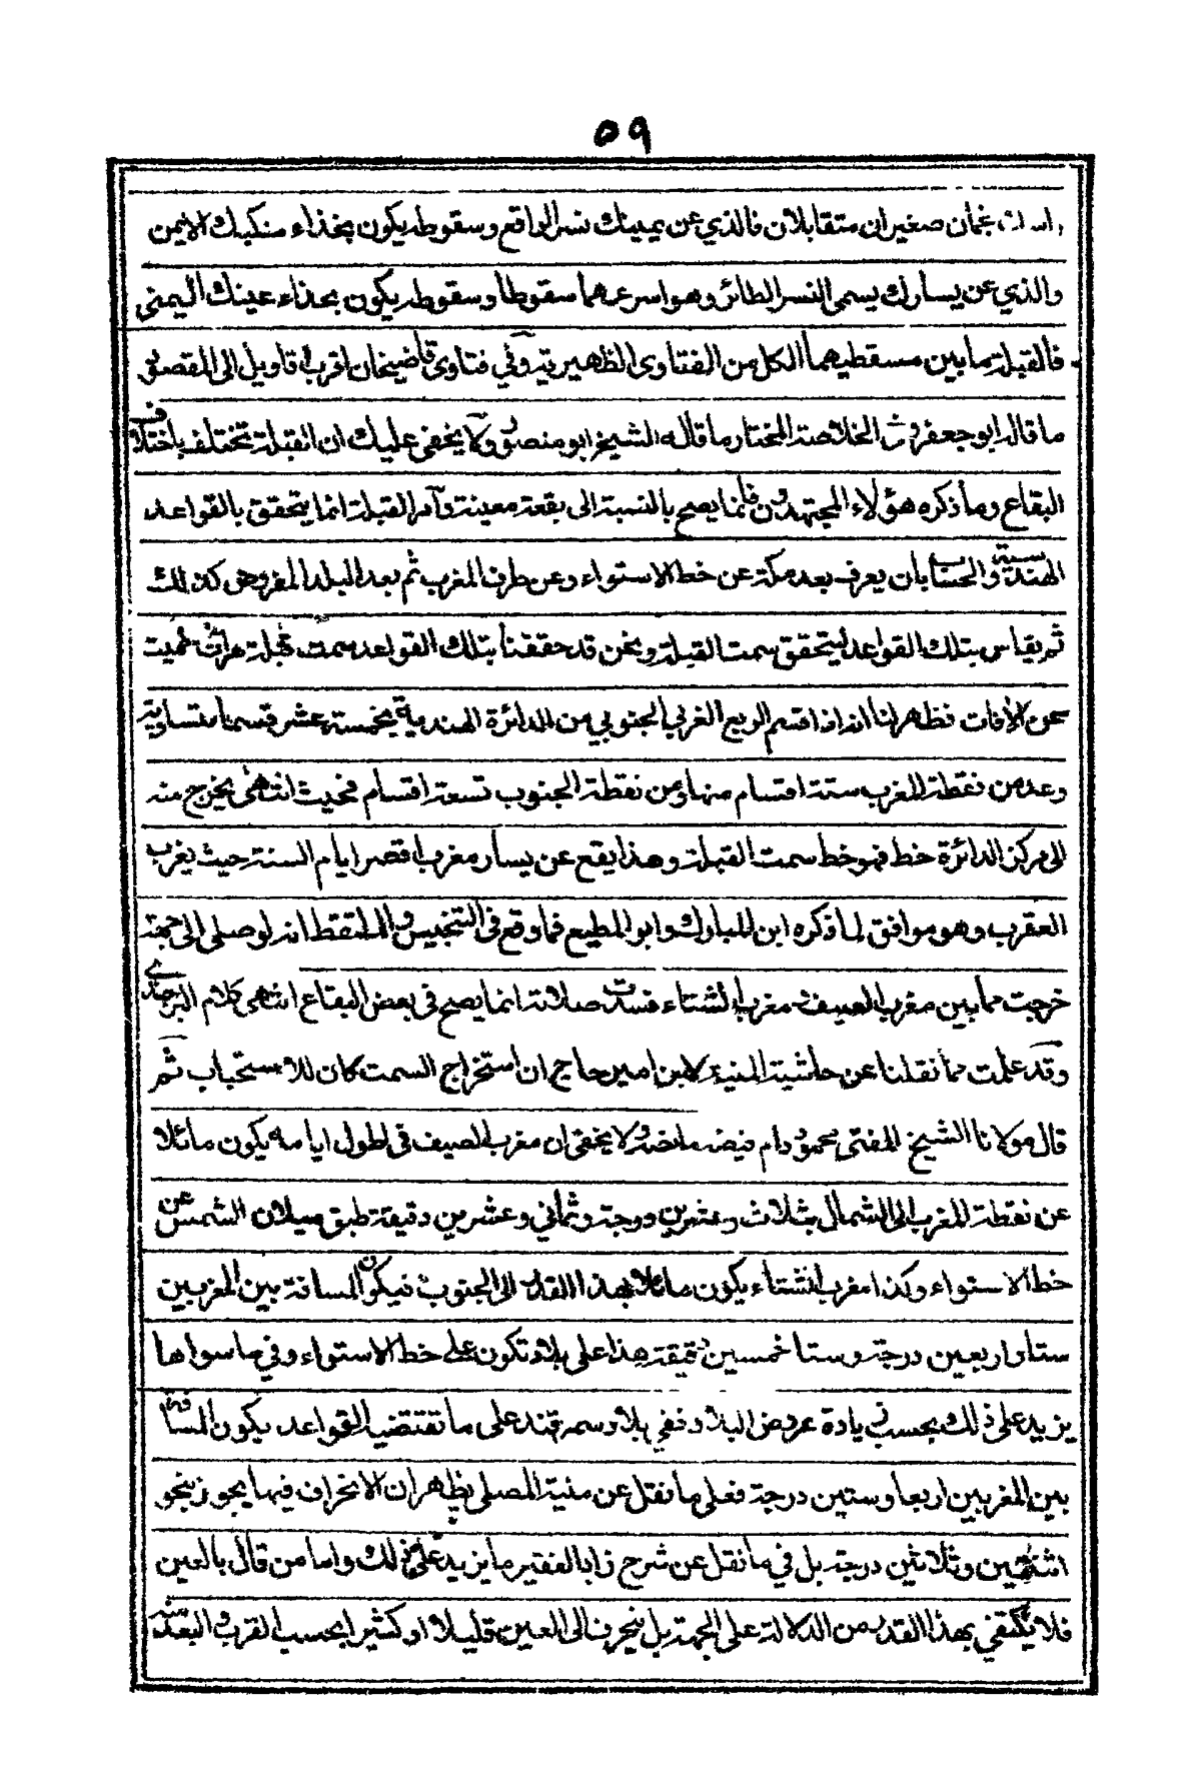 ٥٩
نجمان صغيران متقابلان فالذي عن يمينك نسر الواقع وسقوطه يكون بحذاء منكبك الايمن
والذي عن يسارك يسمى النسر الطائر وهو اسرعهما سقوطا وسقوطه يكون بحذاء عينك اليمنى
فالقبلة ما بين مسقطيهما الكل من الفتاوى الظهيرية وفي فتاوى قاضيخان اقرب الاقاويل الى المقصود
ما قاله ابو جعفر وفي الخلاصة المختار ما قاله الشيخ ابو منصور ولا يخفى عليك ان القبلة تختلف باختلاف
البقاع وما ذكره هؤلاء المجتهدون فانما يصح بالنسبة الى بقعة معينة وامر القبلة انما يتحقق بالقواعد
الهندسية والحساب بان يعرف بعد مكة عن خط الاستواء وعن طرف المغرب ثم بعد البلد المفروض كذلك
ثم يقاس بتلك القواعد ليتحقق سمت القبلة ونحن قد حققنا بتلك القواعد سمت قبلة هراة حميت
عن الافات فظهر لنا انه اذا اقسم الربع الغربي الجنوبي من الدائرة الهندية بخمسة عشر قسما متساوية
وعد من نقطة المغرب ستة اقسام منها ومن نقطة الجنوب تسعة اقسام فحيث انتهى يخرج منه
الى مركز الدائرة خط فهو خط سمت القبلة وهذا يقع عن يسار مغرب اقصر ايام السنة حيث يغرب
العقرب وهو موافق لما ذكره ابن المبارك وابو المطيع فما وقع في التجنيس والملتقط انه لو صلى الى جهة
خرجت مما بين مغرب الصيف ومغرب الشتاء فسدت صلاته انما يصح في بعض البقاع انتهى كلام البرجندي
وقد علمت مما نقلنا عن حاشية المنية لابن امير حاج ان استخراج السمت كان للاستحباب ثم
قال مولانا الشيخ المفتي محمود دام فيضه ما نصه ولا يخفى ان مغرب الصيف في اطول ايامه يكون مائلا
عن نقطة المغرب الى الشمال بثلاث وعشرين درجة وثماني وعشرين دقيقة طبق ميلان الشمس عن
خط الاستواء وكذا مغرب الشتاء يكون مائلا بهذا القدر الى الجنوب فيكون المسافة بين المغربين
ستا واربعين درجة وستا خمسين دقيقة هذا على بلاد تكون على خط الاستواء وفي ما سواها
يزيد على ذلك بحسب زيادة عروض البلاد ففي بلاد سمرقند على ما تقتضيه القواعد يكون المسافة
بين المغربين اربعا وستين درجة فعلى ما نقل عن منية المصلي يظهر ان الانحراف فيها يجوز بنحو
اثنتين وثلاثين درجة بل في ما نقل عن شرح زاد الفقير ما يزيد على ذلك واما من قال بالعين
فلا يكتفي بهذا القدر من الدلالة على الجهة بل ينحرف الى العين قليلا او كثيرا بحسب القرب والبعد منه